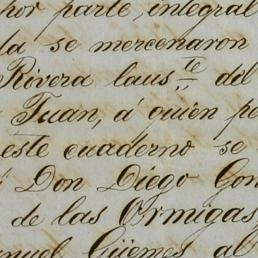 por parte, integral
la se mercenaron
Rivera laus.te del
Juan, á quien pe
este cuaderno se
Don Diego Gon
de las Ormigas
nuel Güemes al